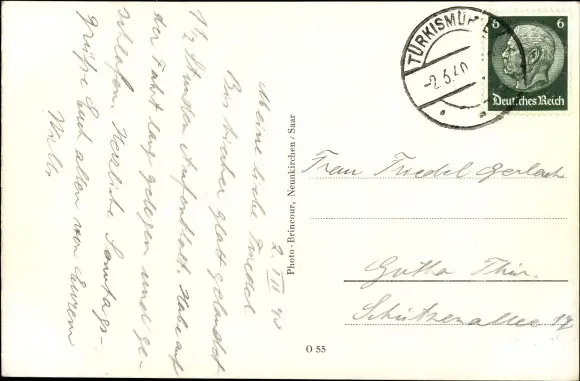 2. III 40
Meine liebe Friedel
Bin bisher glatt gelandet
1 ½ Stunden Aufenthalt. Habe auf
der Fahrt lang gelegen und ge-
schlafen. Herzliche Sonntags-
grüße Euch allen von Eurem
Willi
Photo-Brincour, Neunkirchen / Saar
O 55
TÜRKISMÜHLE
-2.3.40
6 6
Deutsches Reich
Frau Friedel Gerlach
Gotha Thür.
Schützenallee 17